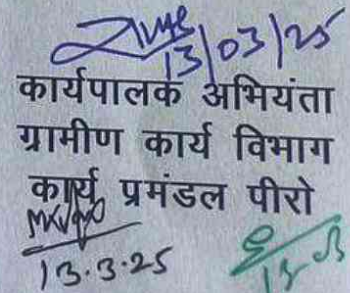 13/03/25
कार्यपालक अभियंता
ग्रामीण कार्य विभाग
कार्य प्रमंडल पीरो
13.3.25